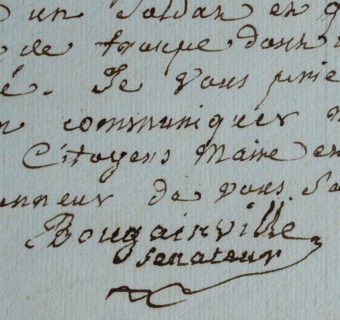 un Soldat en
de troupe donn
é. Je vous prie
communiquer
Citoyens Maire en
nneur de vous Sa
Bougainville
Senateur